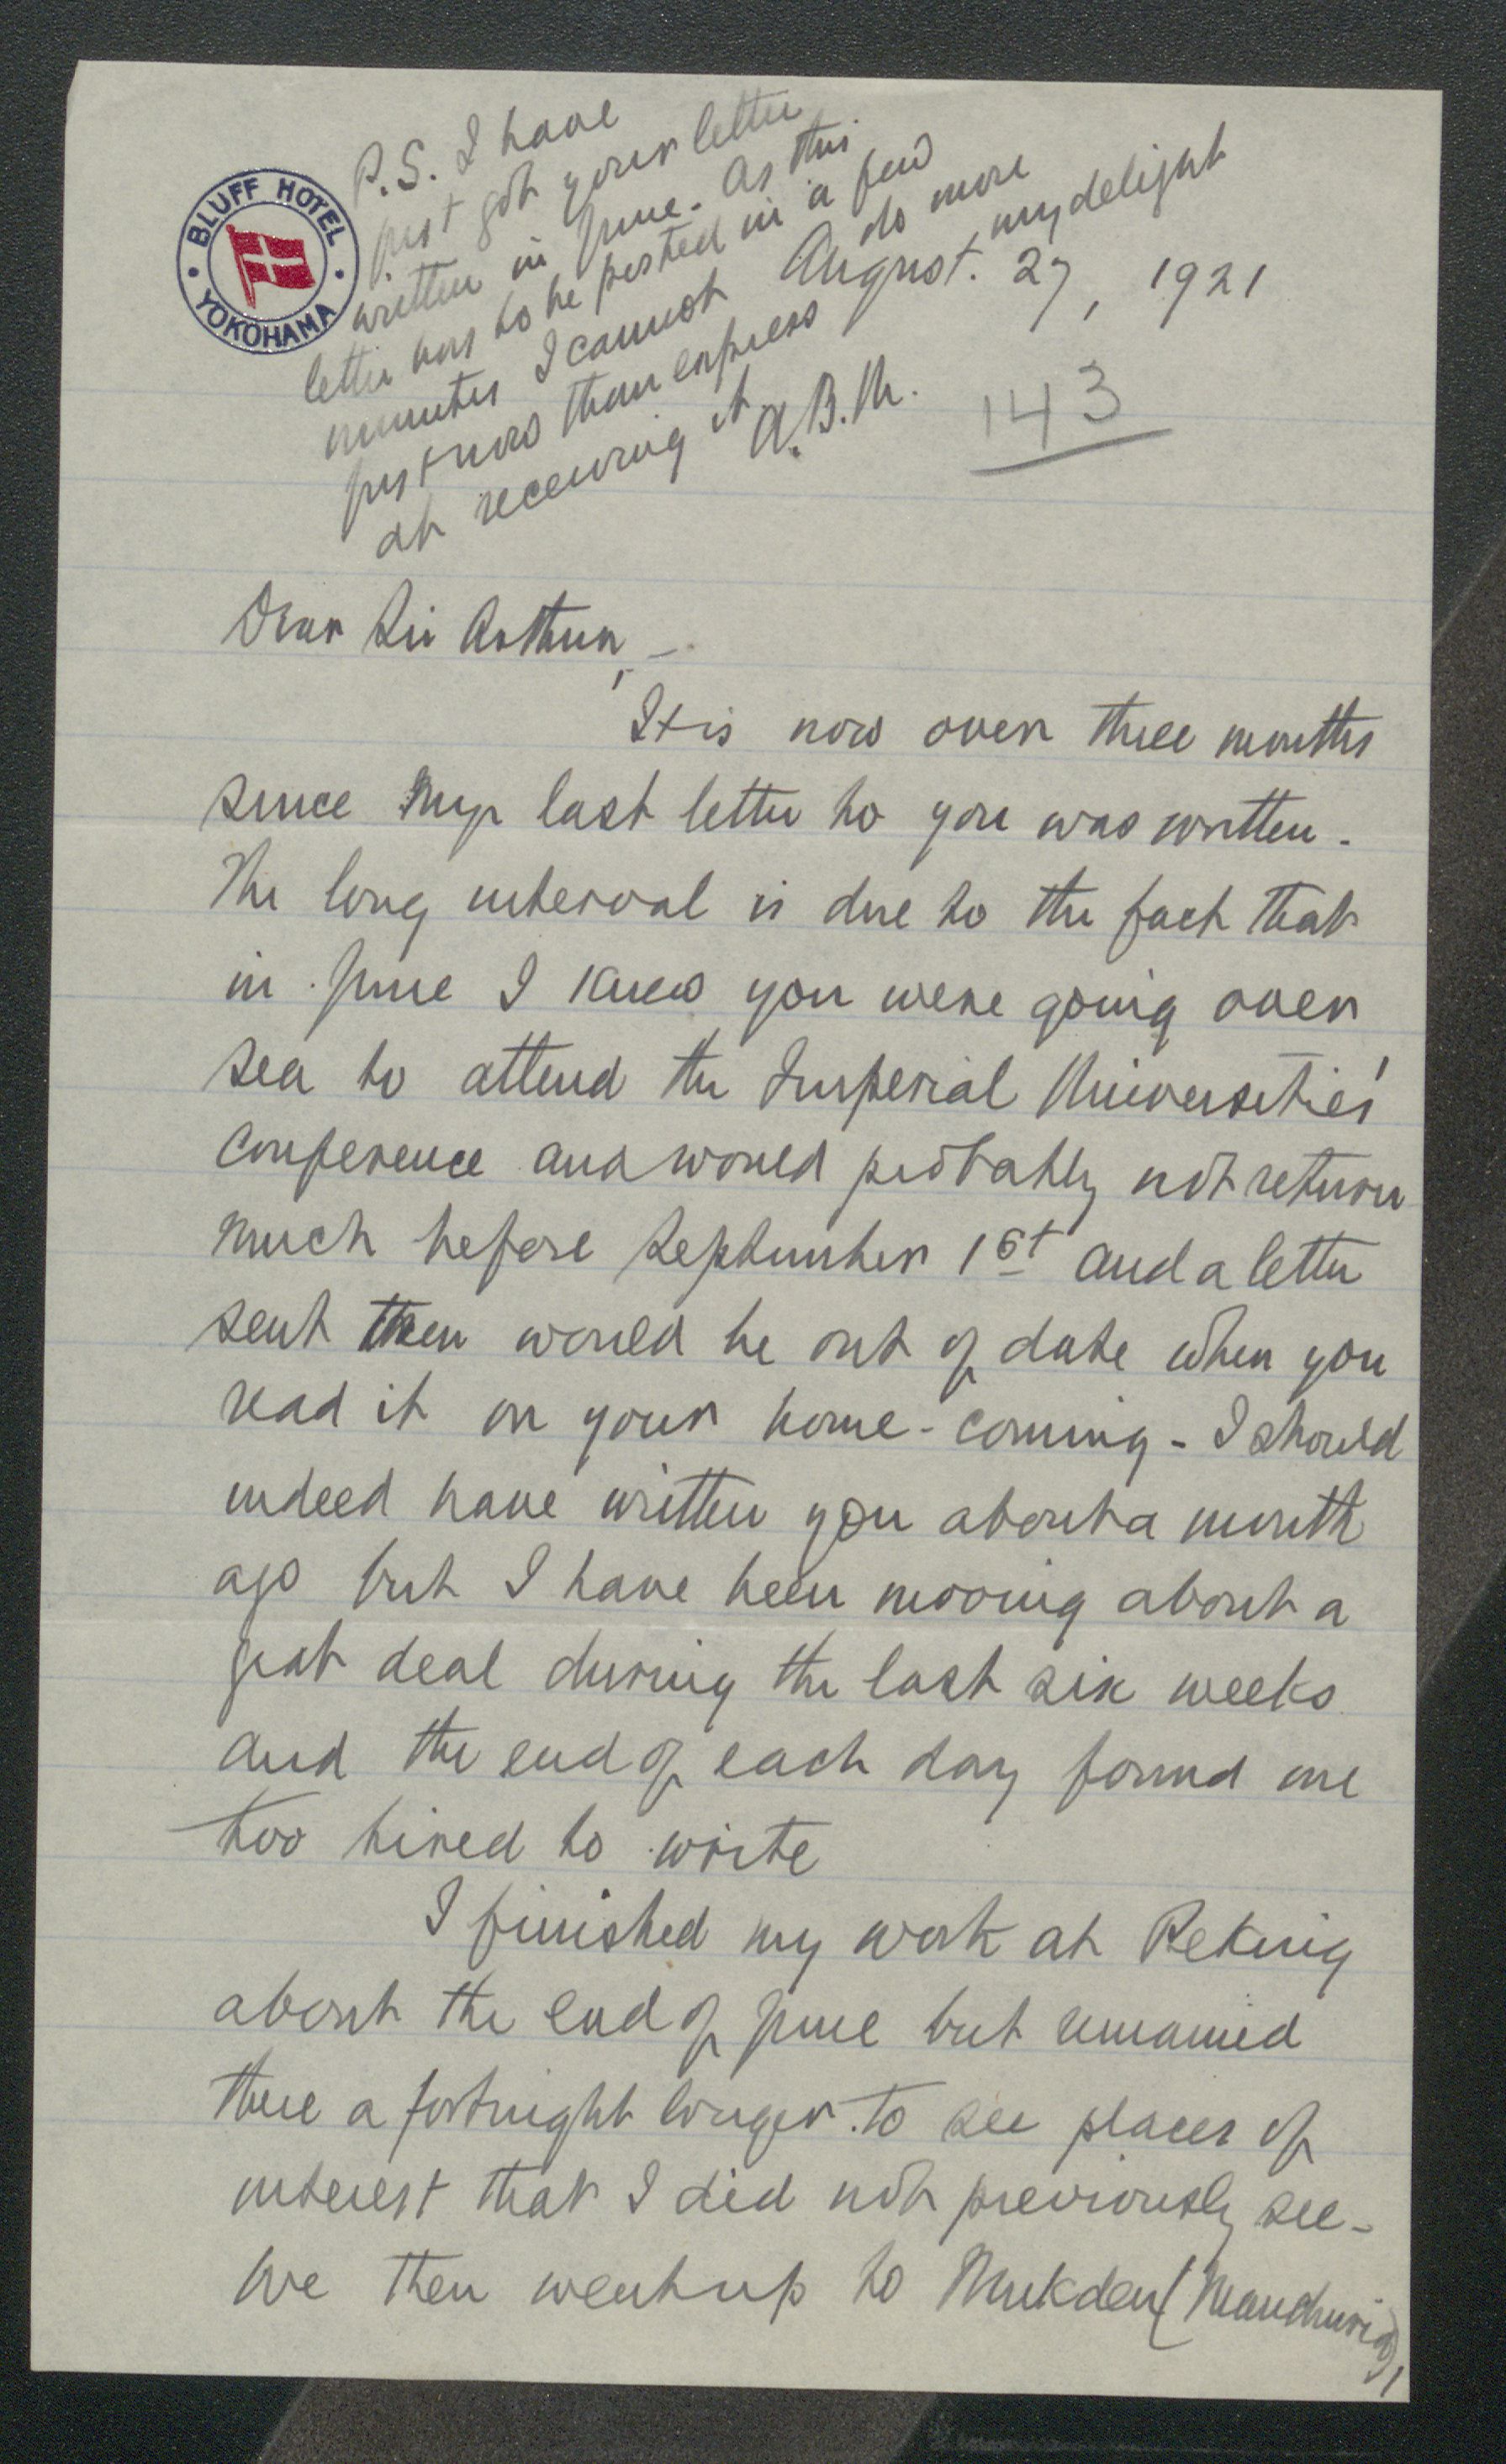 BLUFF HOTEL
YOKOHAMA
P.S. I have
just got your letter
written in June. As this
letter has to be posted in a few
minutes I cannot do more
just now than express my delight
at receiving it
A.B.M.
August. 27, 1921
143
Dear Sir Arthur,—
It is now over three months
since my last letter to you was written.
The long interval is due to the fact that
in June I knew you were going over
sea to attend the Imperial Universities'
Conference and would probably not return
much before September 1st and a letter
sent then would be out of date when you
read it on your home-coming - I should
indeed have written you about a month
ago but I have been moving about a
great deal during the last six weeks
and the end of each day found me
too tired to write
I finished my work at Peking
about the end of June but remained
there a fortnight longer to see places of
interest that I did not previously see-
We then went up to Mukden (Manchuria),